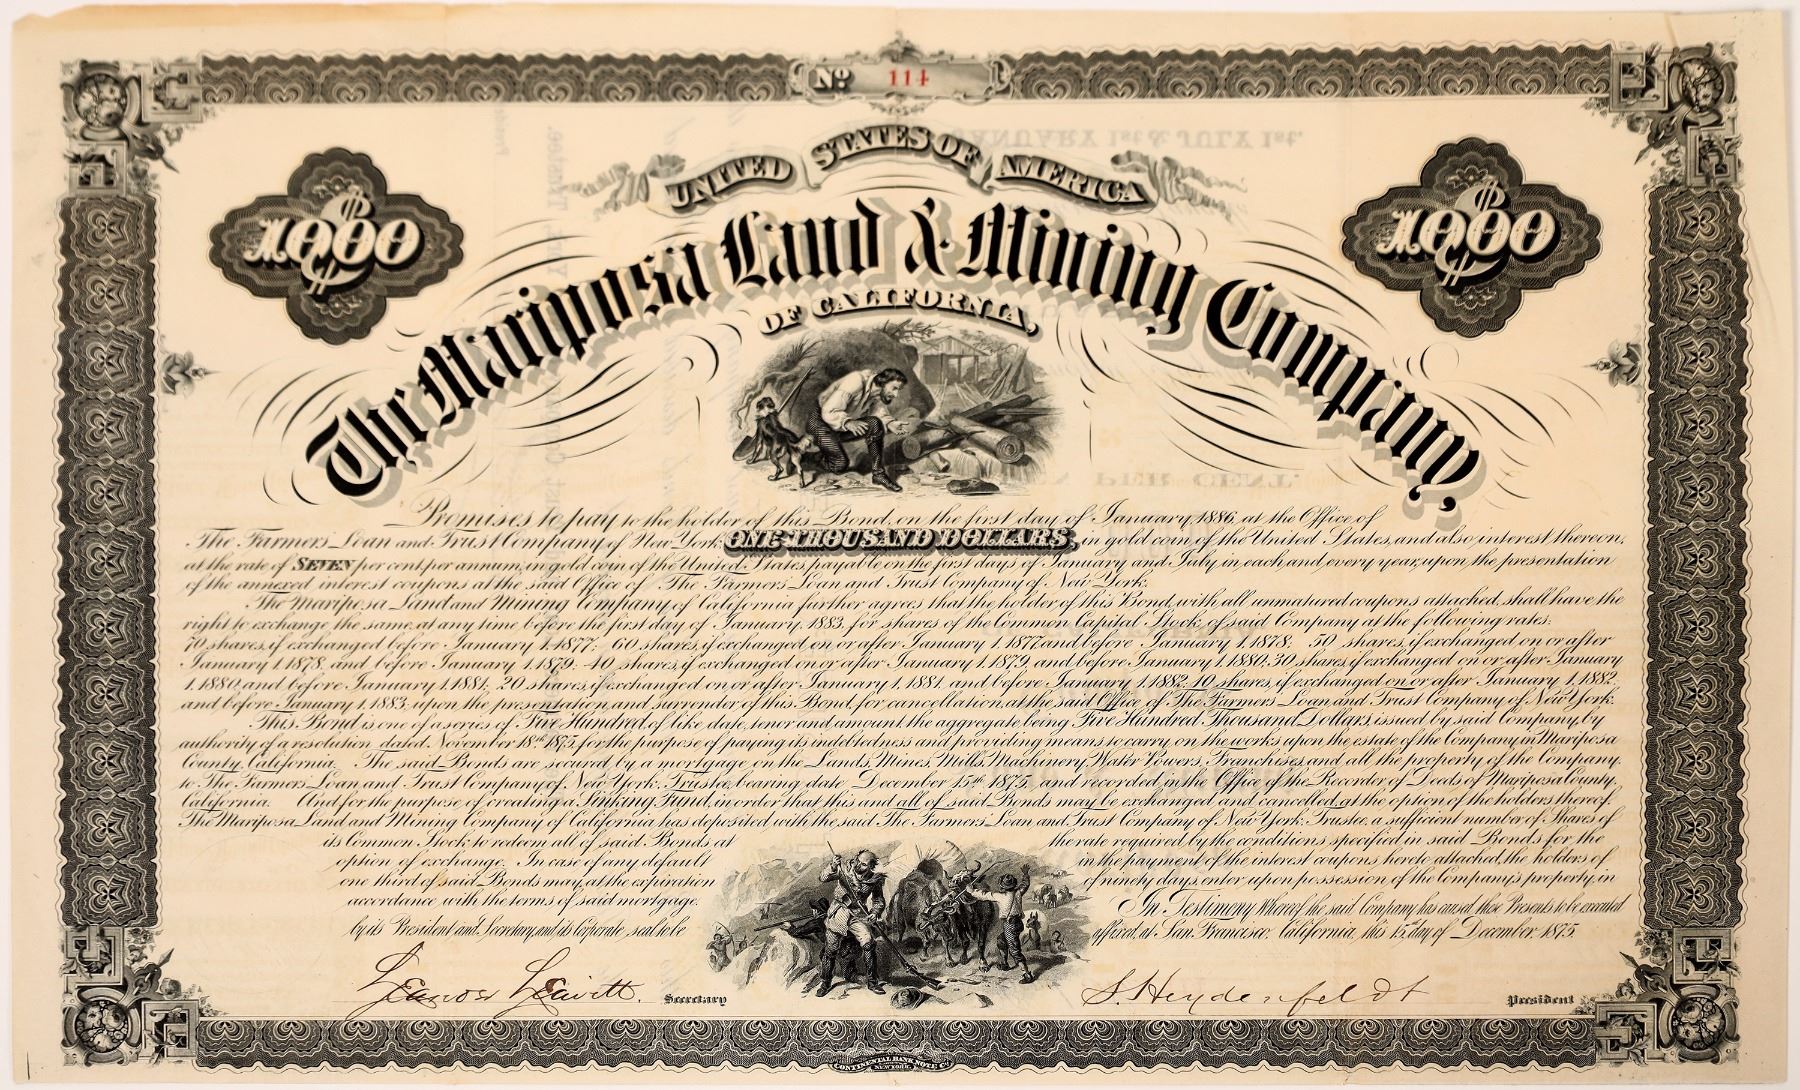 No. 114
UNITED STATES OF AMERICA
$1000
$1000
The Mariposa Land & Mining Company,
OF CALIFORNIA,
Promises to pay to the holder of this Bond, on the first day of January, 1886, at the Office of
The Farmers' Loan and Trust Company of New York, ONE THOUSAND DOLLARS, in gold coin of the United States, and also interest thereon,
at the rate of SEVEN per cent. per annum, in gold coin of the United States, payable on the first days of January and July, in each and every year, upon the presentation
of the annexed interest coupons at the said Office of The Farmers' Loan and Trust Company of New York.
The Mariposa Land and Mining Company of California further agrees that the holder of this Bond, with all unmatured coupons attached, shall have the
right to exchange the same, at any time before the first day of January, 1883, for shares of the Common Capital Stock, of said Company at the following rates:
70 shares, if exchanged before January 1, 1877; 60 shares, if exchanged on or after January 1, 1877, and before January 1, 1878; 50 shares, if exchanged on or after
January 1, 1878, and before January 1, 1879; 40 shares, if exchanged on or after January 1, 1879, and before January 1, 1880; 30 shares, if exchanged on or after January
1, 1880, and before January 1, 1881; 20 shares, if exchanged on or after January 1, 1881, and before January 1, 1882; 10 shares, if exchanged on or after January 1, 1882,
and before January 1, 1883, upon the presentation and surrender of this Bond, for cancellation, at the said Office of The Farmers Loan and Trust Company of New York.
This Bond is one of a series of Five Hundred, of like date, tenor and amount, the aggregate being Five Hundred Thousand Dollars, issued by said Company, by
authority of a resolution dated November 18th 1875, for the purpose of paying its indebtedness and providing means to carry on the works upon the estate of the Company in Mariposa
County, California. The said Bonds are secured by a mortgage, on the Lands, Mines, Mills, Machinery, Water Powers, Franchises, and all the property of the Company,
to The Farmers' Loan and Trust Company of New York, Trustee, bearing date December 15th 1875, and recorded in the Office of the Recorder of Deeds of Mariposa County,
California. And for the purpose of creating a Sinking Fund, in order that this and all of said Bonds may be exchanged and cancelled, at the option of the holders thereof,
The Mariposa Land and Mining Company of California has deposited with the said The Farmers' Loan and Trust Company of New York, Trustee, a sufficient number of Shares of
its Common Stock to redeem all of said Bonds at the rate required by the conditions specified in said Bonds for the
option of exchange. In case of any default in the payment of the interest coupons hereto attached, the holders of
one third of said Bonds may, at the expiration of ninety days, enter upon possession of the Company's property, in
accordance with the terms of said mortgage. In Testimony Whereof the said Company has caused these Presents to be executed
by its President and Secretary, and its Corporate seal to be affixed, at San Francisco, California, this 15 day of December, 1875.
Leander Leavitt. Secretary
S. Heydenfeldt President
CONTINENTAL BANK NOTE CO.
NEW YORK.